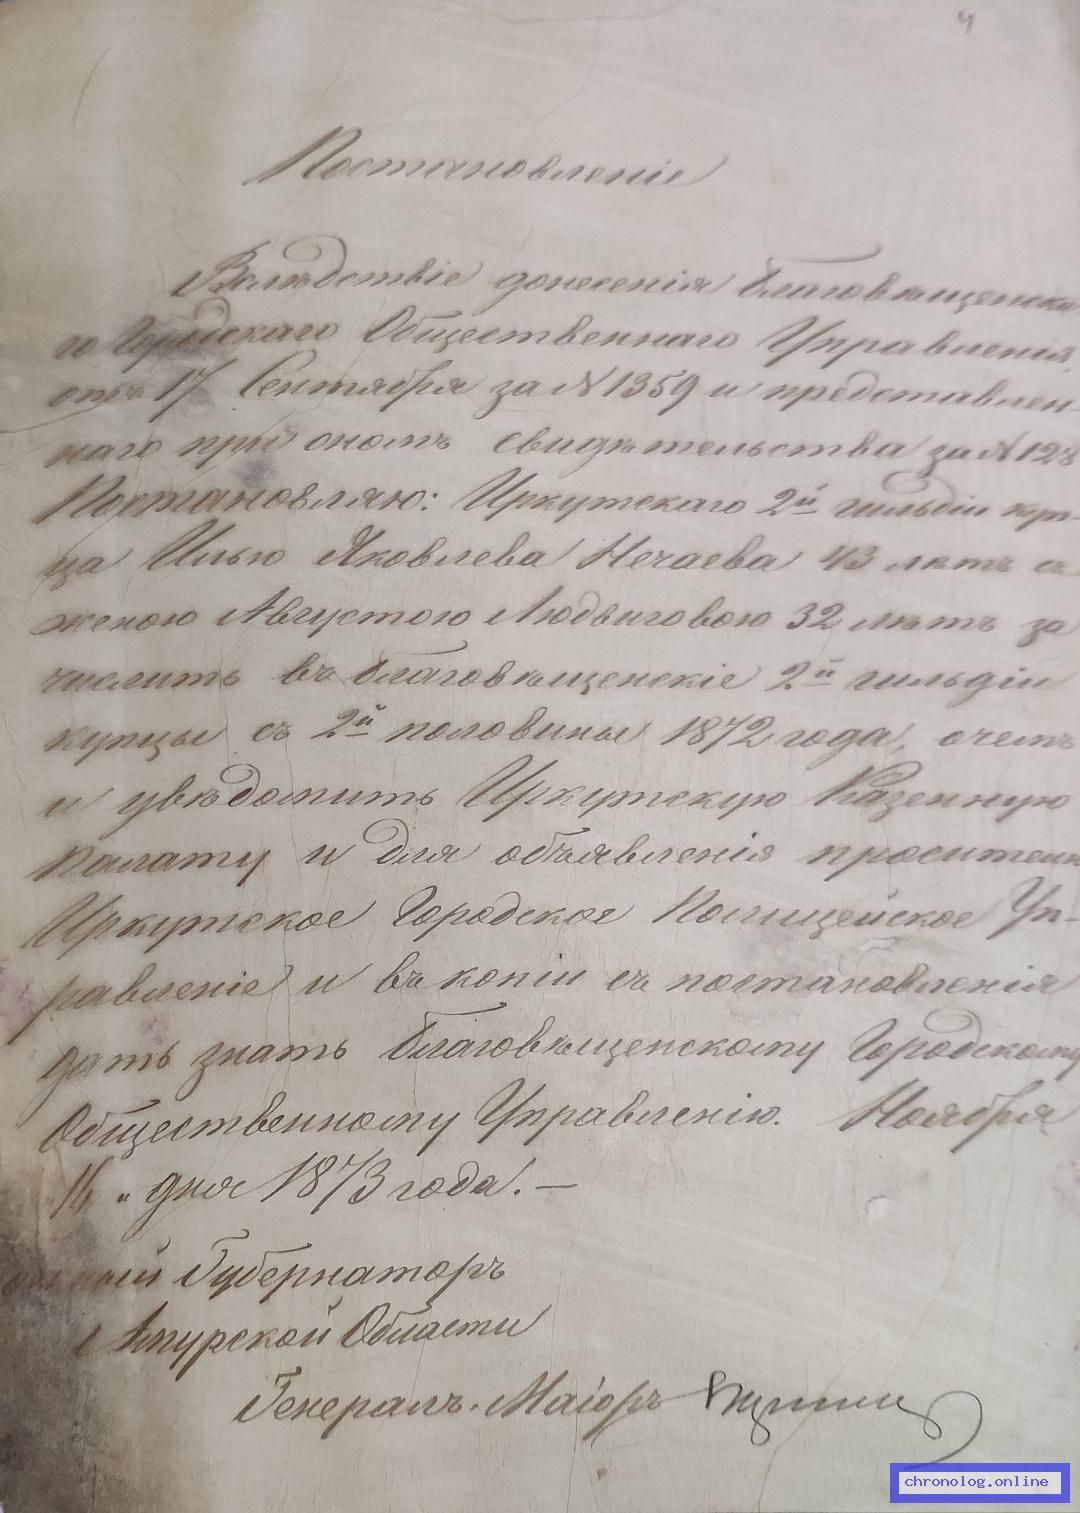 4
Постановленіе
Вслѣдствіе донесенія Благовѣщенска
го Городскаго Общественнаго Управленія,
отъ 17 Сентября за № 1359 и представлен-
наго при ономъ свидѣтельства за № 128
Постановляю: Иркутскаго 2й гильдіи куп-
ца Илью Яковлева Нечаева 43 лѣтъ съ
женою Августою Людвиговою 32 лѣтъ за
числить въ Благовѣщенскіе 2й гильдіи
купцы съ 2й половины 1872 года, о чемъ
и увѣдомить Иркутскую Казенную
Палату и для объявленія просителю
Иркутское Городское Полицейское Уп-
равленіе и въ копіи съ постановленія
дать знать Благовѣщенскому Городскому
Общественному Управленію. Ноября
" дня 1873 года. —
Губернаторъ
Амурской Области
Генералъ-Маіоръ
chronolog.online